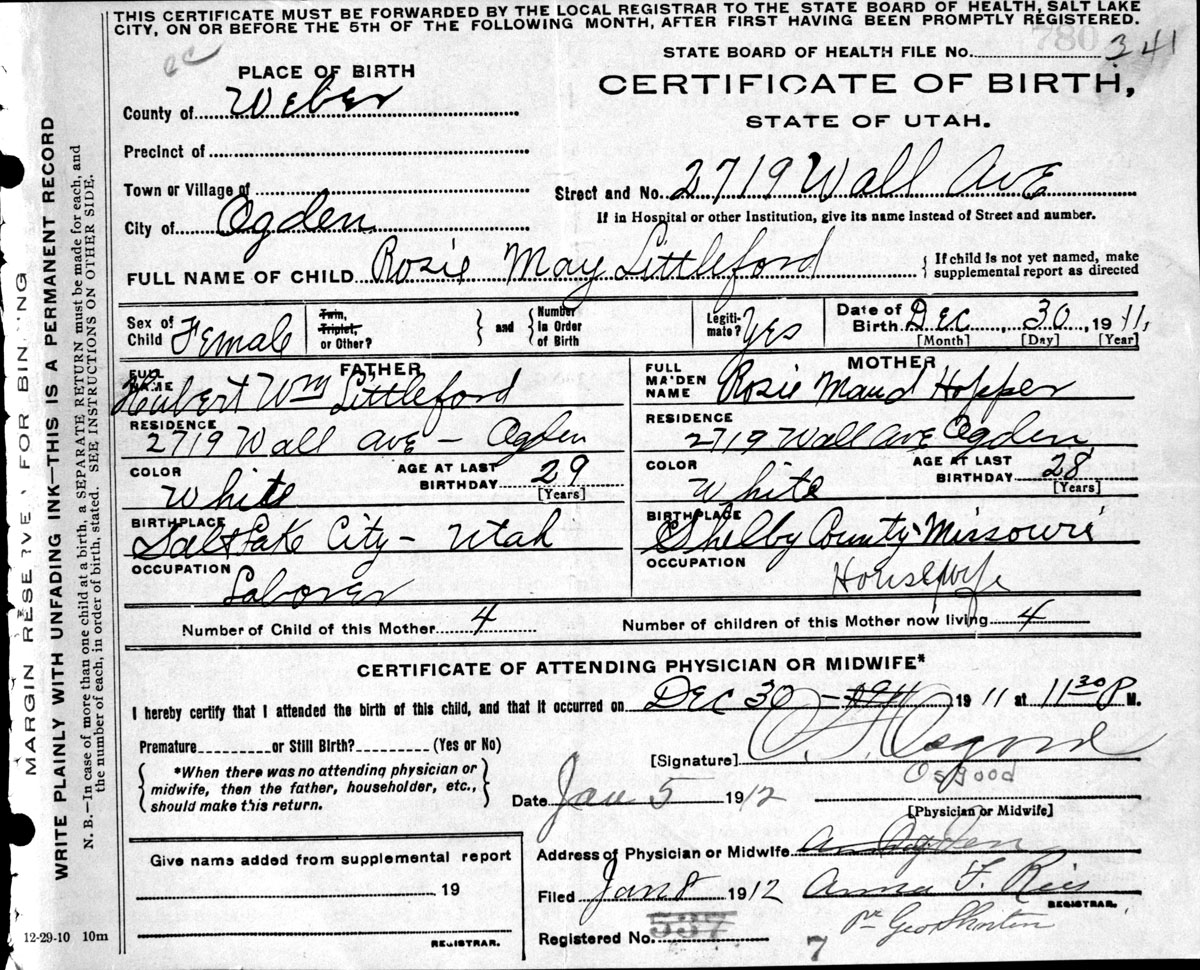 THIS CERTIFICATE MUST BE FORWARDED BY THE LOCAL REGISTRAR TO THE STATE BOARD OF HEALTH, SALT LAKE
CITY, ON OR BEFORE THE 5TH OF THE FOLLOWING MONTH, AFTER FIRST HAVING BEEN PROMPTLY REGISTERED.
780
STATE BOARD OF HEALTH FILE No. 341
PLACE OF BIRTH
CERTIFICATE OF BIRTH,
STATE OF UTAH.
County of Weber
Precinct of
Town or Village of
Street and No. 2719 Wall Ave
City of Ogden
If in Hospital or other Institution, give its name instead of Street and number.
FULL NAME OF CHILD Rosie May Littleford { If child is not yet named, make
supplemental report as directed
Sex of Child Female
Twin, Triplet, or Other? } and { Number in Order of Birth
Legiti-mate? Yes
Date of Birth Dec, 30, 1911,
[Month] [Day] [Year]
FATHER
FULL NAME Hubert Wm Littleford
RESIDENCE
2719 Wall Ave – Ogden
COLOR White
AGE AT LAST BIRTHDAY 29 [Years]
BIRTHPLACE
Salt Lake City – Utah
OCCUPATION
Laborer
MOTHER
FULL MAIDEN NAME Rosie Maud Hopper
RESIDENCE
2719 Wall Ave Ogden
COLOR White
AGE AT LAST BIRTHDAY 28 [Years]
BIRTHPLACE
Shelby County Missouri
OCCUPATION
Housewife
Number of Child of this Mother 4
Number of children of this Mother now living 4
CERTIFICATE OF ATTENDING PHYSICIAN OR MIDWIFE*
I hereby certify that I attended the birth of this child, and that it occurred on Dec 30 – 1911 1911 at 11 30 P M.
Premature or Still Birth? (Yes or No)
{ *When there was no attending physician or
midwife, then the father, householder, etc.,
should make this return. }
[Signature] Osgood
Osgood
Date Jan 5 1912
[Physician or Midwife]
Address of Physician or Midwife Ogden
Give name added from supplemental report
19
REGISTRAR.
Filed Jan 8 1912 Anna F. Reis
REGISTRAR.
pr Geo Shorten
Registered No. 537
7
12-29-10 10m
MARGIN RESERVED FOR BINDING
WRITE PLAINLY WITH UNFADING INK—THIS IS A PERMANENT RECORD
N. B.—In case of more than one child at a birth, a SEPARATE RETURN must be made for each, and
the number of each, in order of birth, stated. SEE INSTRUCTIONS ON OTHER SIDE.